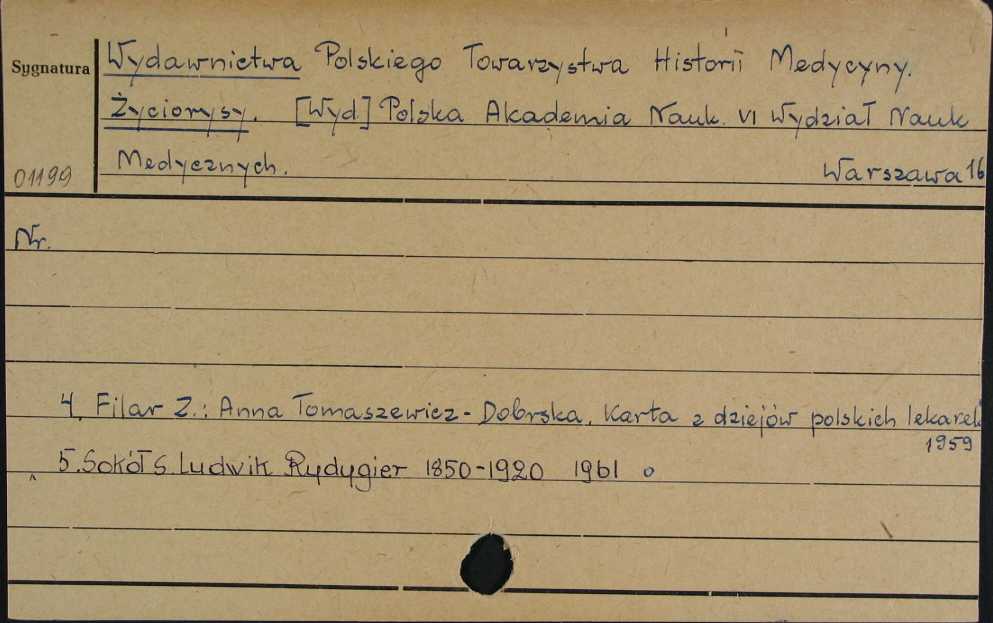 Sygnatura
Wydawnictwa Polskiego Towarzystwa Historii Medycyny.
Życiorysy. [Wyd] Polska Akademia Nauk. VI Wydział Nauk
Medycznych. Warszawa 16
01199
Nr.
4. Filar Z.: Anna Tomaszewicz-Dobrska. Karta z dziejów polskich lekarek
1959
5. Sokół S. Ludwik Rydygier 1850-1920 1961 o